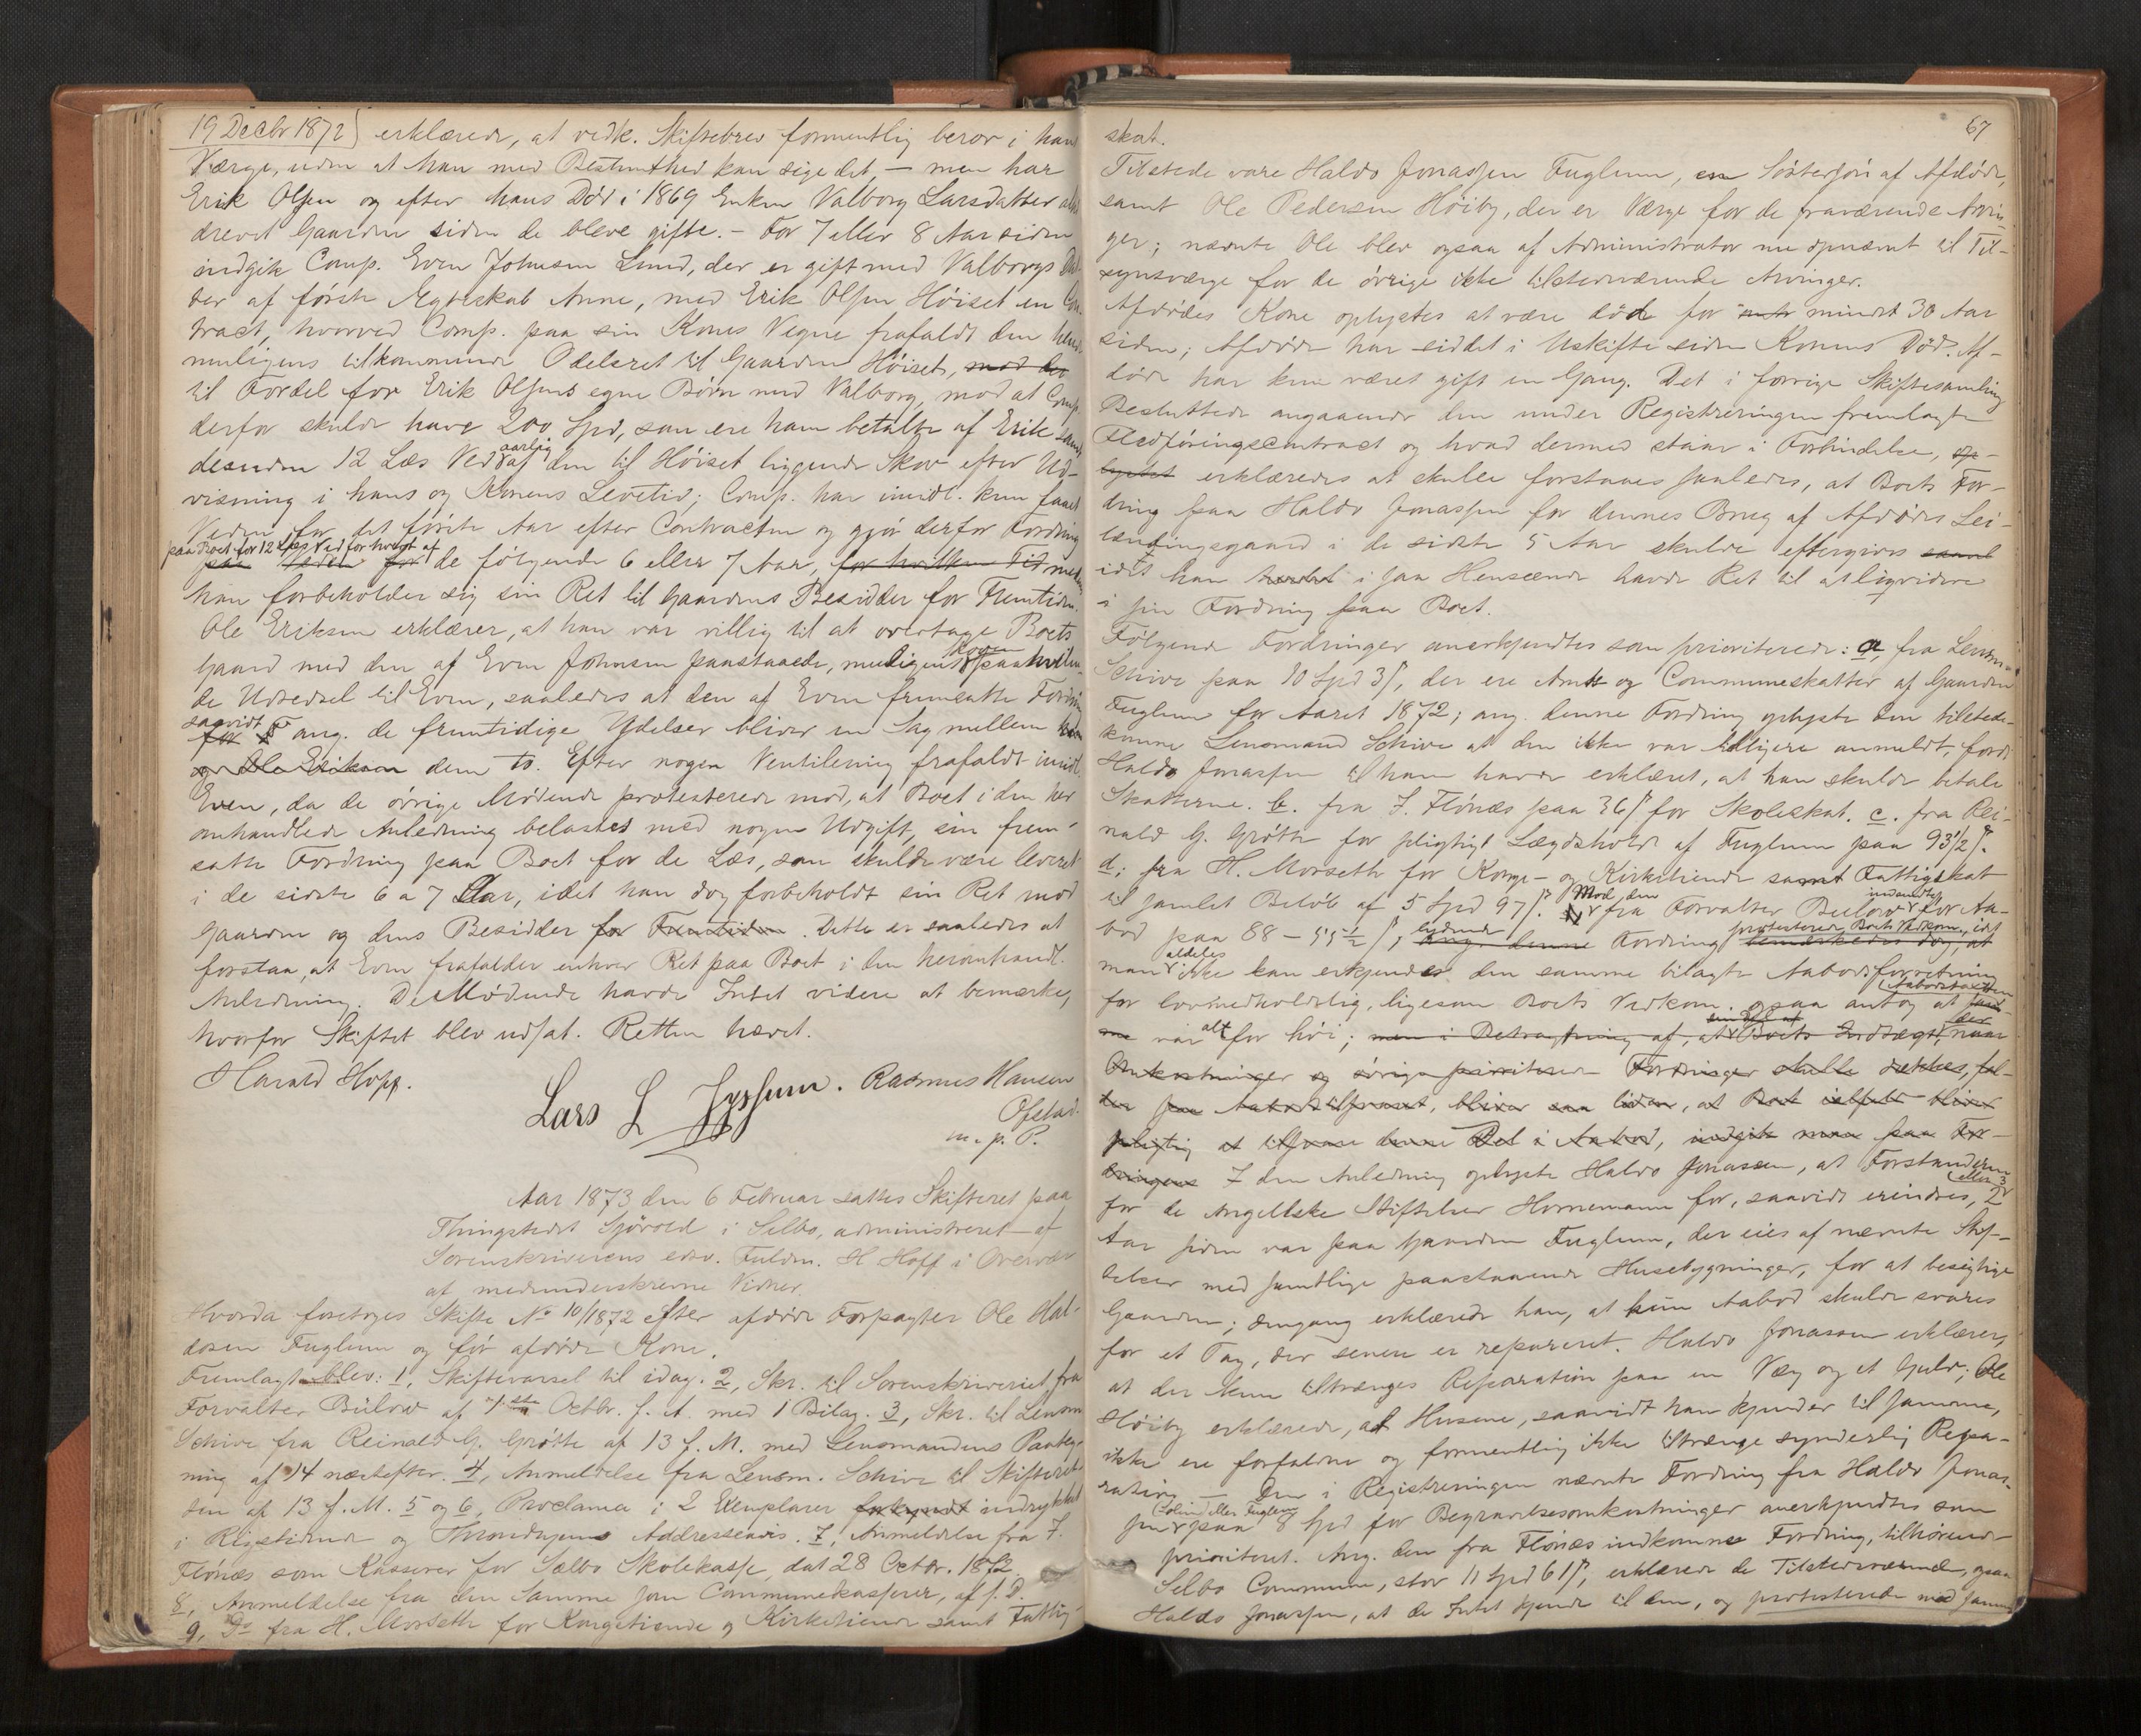 19 Decbr 1872) erklærede, at vedk. Skiftebrev formentlig beror i hans
Værge, uden at han med Bestemthed kan sige det, — men har
Erik Olsen og efter hans Død i 1869 Enken Valborg Larsdatter
drevet Gaarden siden de bleve gifte. – For 7 eller 8 Aar siden
indgik Comp. Even Johnsen Lund, der er gift med Valborgs Dat-
ter af første Ægteskab Anne, med Erik Olsen Höiset en Con-
tract, hvorved Comp. paa sin Kones Vegne frafaldt den hende
muligens tilkommende Odelsret til Gaarden Höiset, mod der
til Fordel for Erik Olsens egne Börn med Valborg, mod at Comp.
derfor skulde have 200 Spd, som ere ham betalte af Erik samt
desuden 12 Læs Ved aarlig af den til Höiset liggende Skov efter Ud-
visning i hans og Konens Levetid; Comp. har imidl. kun faaet
Veden for det förste Aar efter Contracten og gjör derfor Fordring
paa Boet for 12 Læs Ved for hvert af
paa Veden for de fölgende 6 eller 7 Aar, for hvilken Tid medens
han forbeholder sig sin Ret til Gaardens Besidder for Fremtiden.
Ole Eriksen erklærer, at han var villig til at overtage Boets
Gaard med den af Even Johnsen paastaaede, muligens paahvilen-
de Udredsel til Even, saaledes at den af Even fremsatte Fordring
saavidt
for ang. de fremtidige Ydelser bliver en Sag mellem ham
og Ole Eriksen dem to. Efter nogen Ventilering frafaldt imidl.
Even, da de övrige Mödende protesterede mod, at Boet i den her
omhandlede Anledning belastes med nogen Udgift, sin frem-
satte Fordring paa Boet for de Læs, som skulde være leveret
i de sidste 6 a 7 Aar, idet han dog forbeholdt sin Ret mod
Gaarden og dens Besidder for Fremtiden. Dette er saaledes at
forstaa, at Even frafalder enhver Ret paa Boet i den heromhandl.
Anledning. De Mödende havde Intet videre at bemærke,
hvorfor Skiftet blev udsat. Retten hævet.
Harald Hopf.
Lars L Fyrsum. Rasmus Hansen
Ofstad.
m. p. P.
Aar 1873 den 6 Februar sattes Skifteret paa
Thingstedet Sjövold i Selbo, administreret af
Sorenskriverens edsv. Fuldm. H Hopf i Overvær
af medunderskrevne Vidner.
Hvorda foretoges Skifte No 10/1872 efter afdöde Forpagter Ole Hal-
dosen Fuglem og för afdöde Kone.
Fremlagt blev: 1, Skiftevarsel til idag. 2, Skr. til Sorenskriveriet fra
Forvalter Bülow af 7de Octbr. f. A. med 1 Bilag. 3, Skr. til Lensm.
Schive fra Reinald G. Grötte af 13 f. M. med Lensmandens Paateg-
ning af 14 næstefter. 4, Anmeldelse fra Lensm. Schive til Skifteret-
ten af 13 f. M. 5 og 6, Proclama i 2 Exemplarer forkyndt indrykket
i Rigstidende og Throndhjems Addresseavis. 7, Anmeldelse fra J.
Flönæs som Kasserer for Sælbo Skolekasse, dat 28 Octbr. 1872.
8, Anmeldelse fra den Samme som Communekasserer, af s. D.
9, Do fra H. Morseth for Kongetiende og Kirketiende samt Fattig-
67
skat.
Tilstede vare Haldo Jonassen Fuglem, en Söstersön af Afdöde,
samt Ole Pedersen Höiby, der er Værge for de fraværende Arvin-
ger; nævnte Ole blev ogsaa af Administrator nu opnævnt til Til-
synsværge for de övrige ikke tilstedeværende Arvinger.
Afdödes Kone oplystes at være död for mindst 30 Aar
siden; Afdöde har siddet i Uskifte siden Konens Död. Af-
döde har kun været gift en Gang. Det i forrige Skiftesamling
Besluttede angaaende den under Registreringen fremlagte
Fledföringscontract og hvad dermed staar i Forbindelse, op-
lystes erklæredes at skulle forstaaes saaledes, at Boets For-
dring paa Haldo Jonassen for dennes Brug af Afdödes Lei-
lændingsgaard i de sidste 5 Aar skulde eftergives samt
idet han havde i saa Henseende havde Ret til at liqvidere
i sin Fordring paa Boet.
Fölgende Fordringer anerkjendtes som prioriterede: a, fra Lensm.
Schive paa 10 Spd 3 ß, der ere Amts og Communeskatter af Gaarden
Fuglem for Aaret 1872; ang. denne Fordring oplyste den tilstede-
komne Lensmand Schive at den ikke var tidligere anmeldt, fordi
Haldo Jonassen til ham havde erklæret, at han skulde betale
Skatterne. b. fra J. Flönæs paa 36 ß for Skoleskat. c. fra Rei-
nald G. Grötte for pligtigt Lægdshold af Fuglem paa 93 1/2 ß.
d; fra H. Morseth for Konge- og Kirketiende samt Fattigskat
til samlet Belöb af 5 Spd 97 ß. Mod den fra Forvalter Bülow indsendte for Aa-
bod paa 88 – 55 1/2 ß, lydende ang. denne Fordring protesterede Boets Vedkom., idet bemærkedes dog, at
man aldeles ikke kan erkjende den samme bilagte Aabodsforretning
for lovmedholdelig, ligesom Boets Vedkom. ogsaa antog at Aabodstaxten sam-
me var alt for höi; men i Betragtning af, at Boets Indtægt, der naar
Omkostninger og övrige prioriterede Fordringer skulle dækkes, fal-
der paa Aabodskravet, bliver saa liden, at Boet ialfald bliver
pligtig at tilsvare denne Del i Aabod, indgik man paa For-
dringen I den Anledning oplyste Haldo Jonassen, at Forstanderen
for de Angellske Stiftelser Hornemann for, saavidt erindres, 2 eller 3
Aar siden var paa Gaarden Fuglem, der eies af nævnte Stif-
telser med samtlige paastaaende Husebygninger, for at besigtige
Gaarden; dengang erklærede han, at kun Aabod skulde svares
for et Tag, der senere er repareret. Haldo Jonassen erklærer,
at der kun tiltrænges Reparation paa en Væg og et Gulv; Ole
Höiby erklærede, at Husene, saavidt han kjender til samme,
ikke ere forfaldne og formentlig ikke tiltrænge synderlig Repa-
ration. — Den i Registreringen nævnte Fordring fra Haldo Jonas-
sen (Solem eller Fuglem) paa 8 Spd for Begravelsesomkostninger anerkjendtes som
prioriteret. Ang. den fra Flönæs indkomne Fordring, tilhörende
Selbo Commune, stor 11 Spd 61 ß, erklærede de Tilstedeværende, ogsaa
Haldo Jonassen, at de Intet kjende til den, og protesterede mod samme